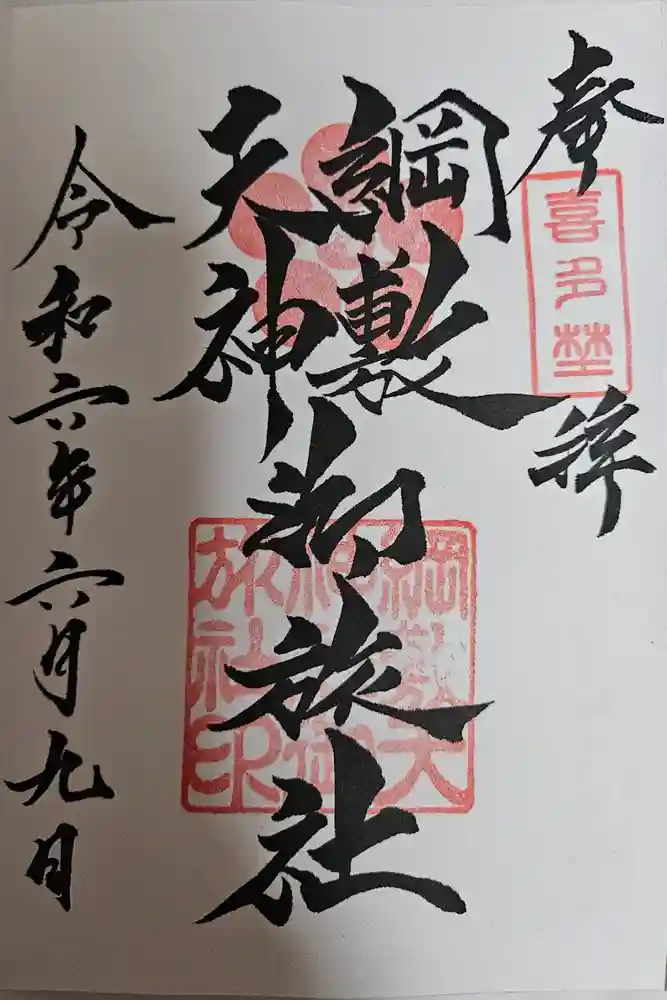 奉拝
喜多埜
綱敷
天神
御旅社
綱敷天
神 御
旅社印
令和六年六月九日